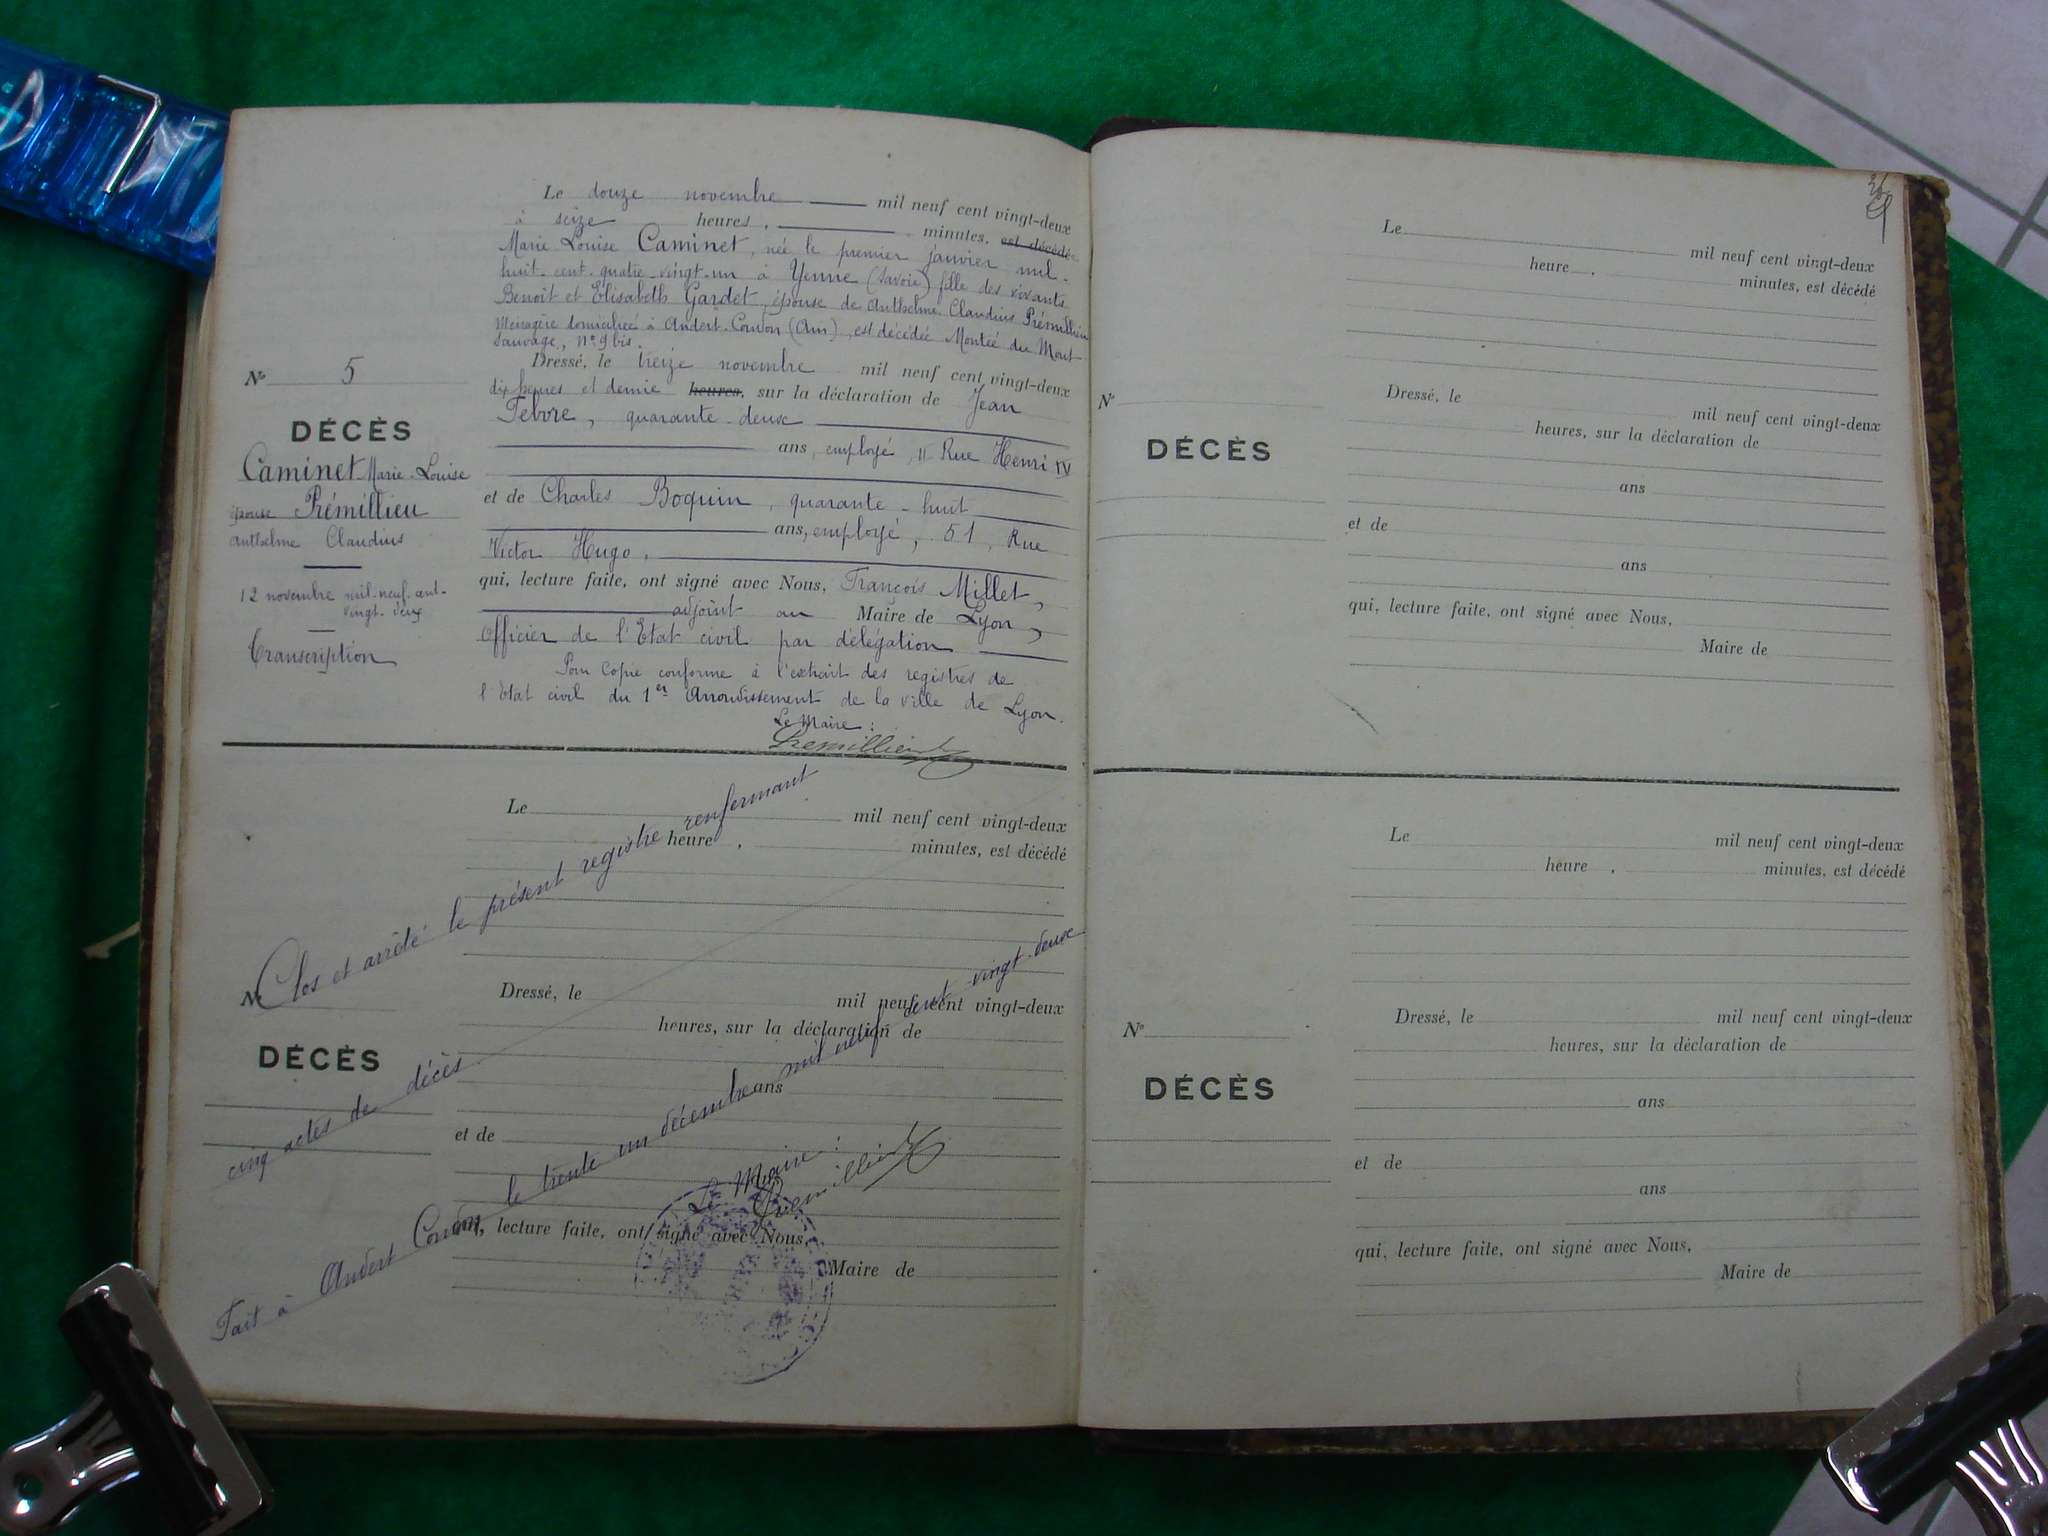 Le douze novembre mil neuf cent vingt-deux
à seize heures, minutes, est décédé
Marie Louise Caminet, née le premier janvier mil-
huit-cent-quatre-vingt-un à Yenne (Savoie) fille des vivants
Benoit et Elisabeth Gardet, épouse de Anthelme Claudius Prémillieu
Ménagère domiciliée à Andert-Condon (Ain), est décédée Montée du Mont
Sauvage, n° 9 bis.
Dressé, le treize novembre mil neuf cent vingt-deux
dix heures et demie heures, sur la déclaration de Jean
Febvre, quarante-deux
ans, employé, 11 Rue Henri IV
et de Charles Boquin, quarante-huit
ans, employé, 51, Rue
Victor Hugo,
qui, lecture faite, ont signé avec Nous, François Millet,
adjoint au Maire de Lyon,
Officier de l'Etat civil par délégation
Pour Copie conforme à l'extrait des registres de
l'Etat civil du 1er Arrondissement de la ville de Lyon.
Le Maire :
Prémillieu
N° 5
DÉCÈS
Caminet Marie-Louise
épouse Prémillieu
Anthelme Claudius
12 novembre mil-neuf-cent-
vingt-deux
Transcription
Le mil neuf cent vingt-deux
heure , minutes, est décédé
Dressé, le mil neuf cent vingt-deux
heures, sur la déclaration de
ans
et de
qui, lecture faite, ont signé avec Nous,
Maire de
N°
DÉCÈS
Clos et arrêté le présent registre renfermant
cinq actes de décès
Fait à Andert Condon, le trente un décembre mil neuf cent vingt-deux
Le Maire :
Prémillieu
Le mil neuf cent vingt-deux
heure , minutes, est décédé
Dressé, le mil neuf cent vingt-deux
heures, sur la déclaration de
N°
DÉCÈS
ans
et de
ans
qui, lecture faite, ont signé avec Nous,
Maire de
Le mil neuf cent vingt-deux
heure , minutes, est décédé
Dressé, le mil neuf cent vingt-deux
heures, sur la déclaration de
N°
DÉCÈS
ans
et de
ans
qui, lecture faite, ont signé avec Nous,
Maire de